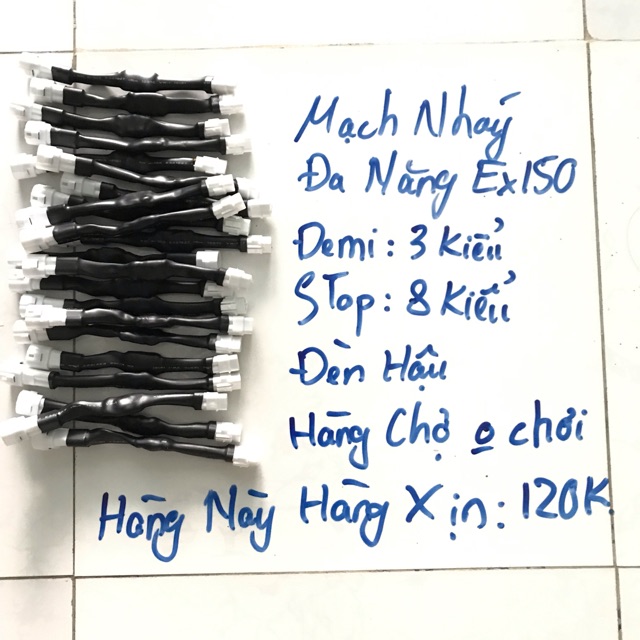 Mạch Nháy
Đa Năng Ex150
Demi: 3 Kiểu
Stop: 8 Kiểu
Đèn Hậu
Hàng Chợ o chơi
Hàng Này Hàng Xịn: 120K